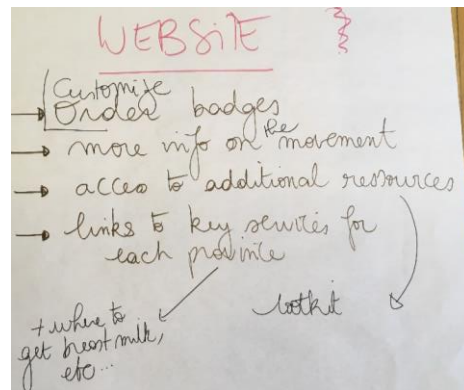 WEBSITE
Customize
Order badges
→ more info on the movement
→ access to additional ressources
→ links to key services for
each province
toolkit
+ where to
get breast milk,
etc...